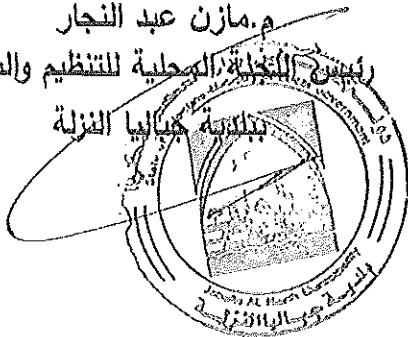 م.مازن عبد النجار
رئيس اللجنة المحلية للتنظيم وال
ببلدية جباليا النزلة
بلدية جباليا النزلة